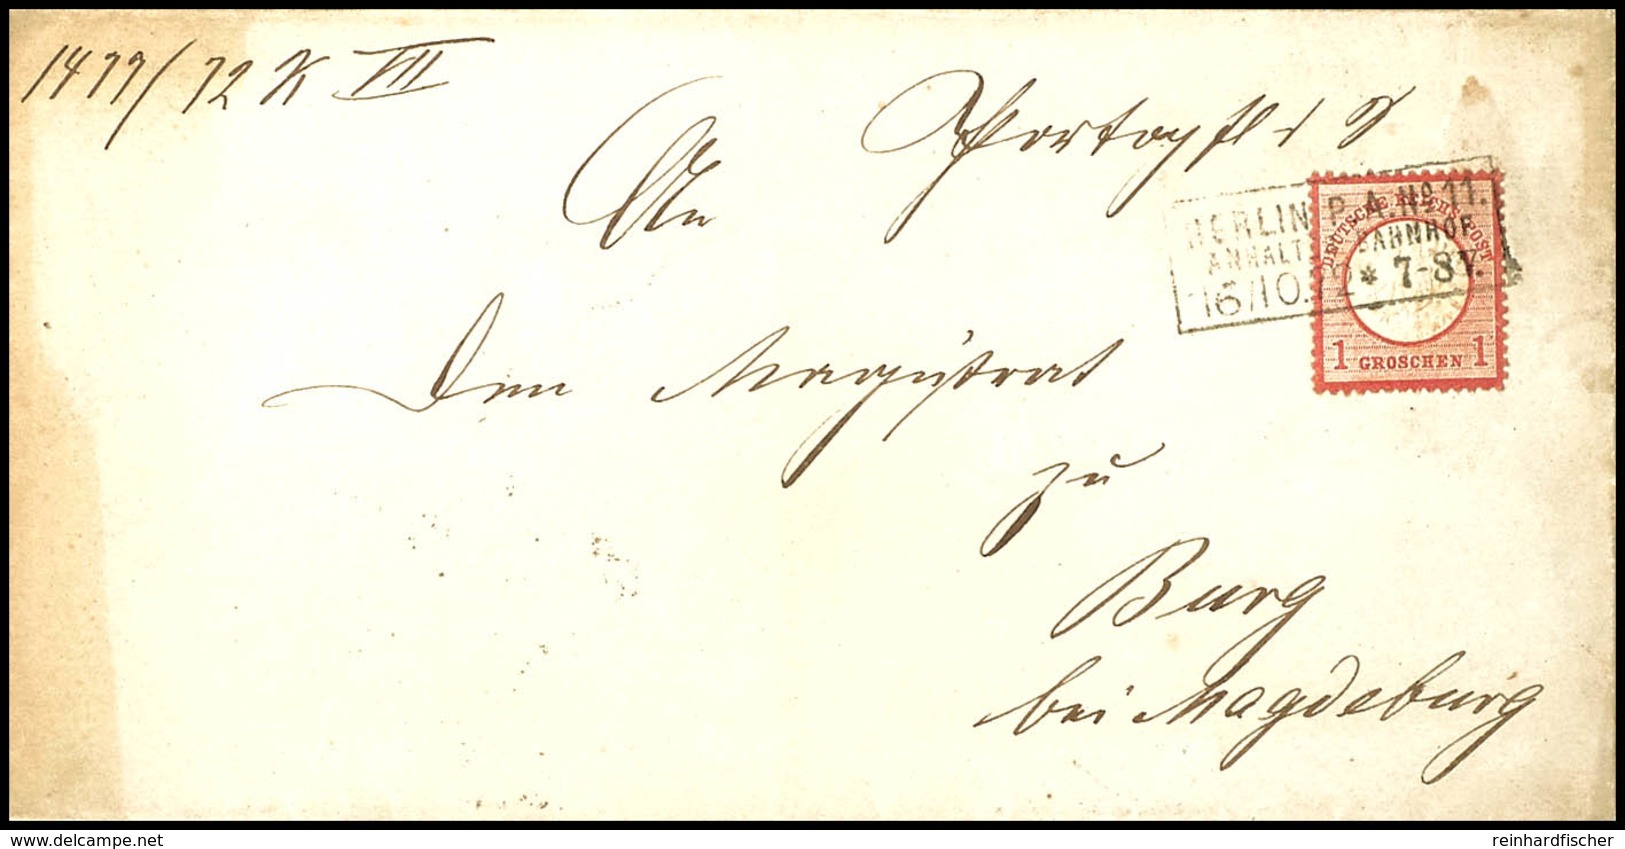 1479/72 K VII
Portopfl
An
BERLIN P. A. No. 11.
ANHALT. BAHNHOF
16/10.72 * 7-8 V.
DEUTSCHE REICHS-POST
1 GROSCHEN 1
Den Magistrat
zu
Burg
bei Magdeburg
www.delcampe.net
reinhardfischer